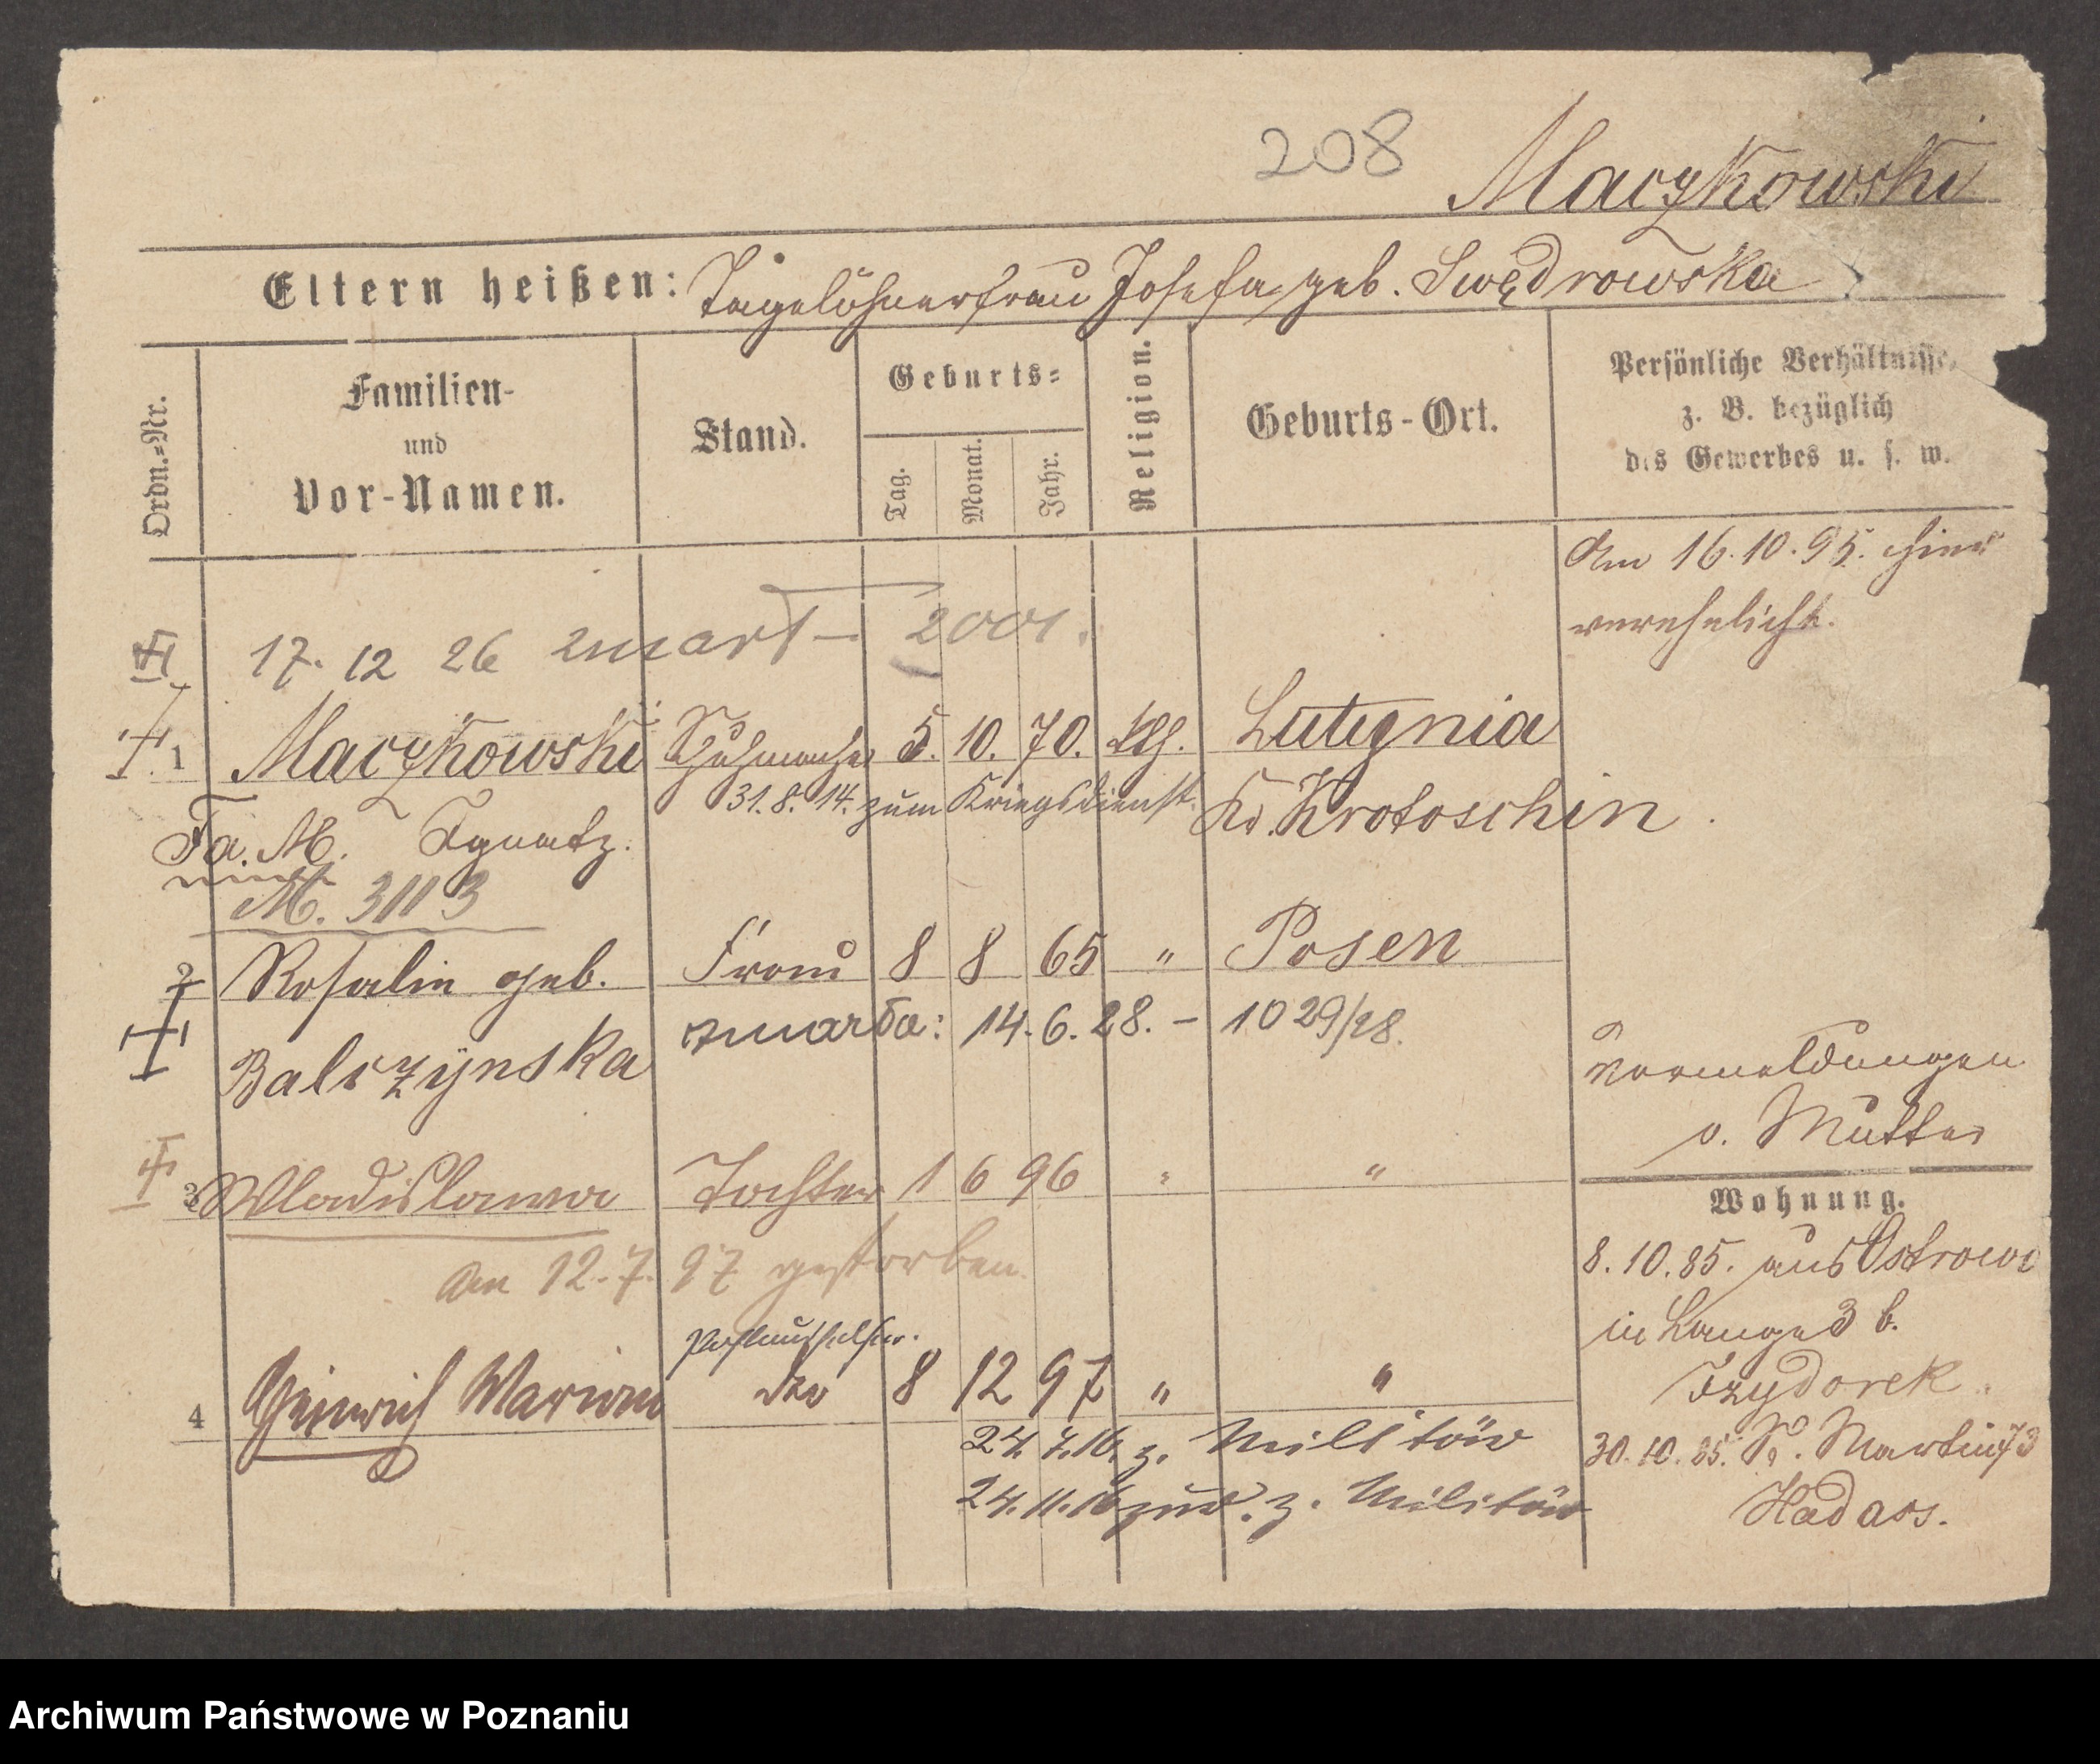 208
Maczkowski
Eltern heißen: Tagelöhnerfrau Josefa geb. Swędrowska
Ordn.=Nr.
Familien-
und
Vor-Namen.
Stand.
Geburts=
Tag.
Monat.
Jahr.
Religion.
Geburts-Ort.
Persönliche Verhältnisse,
z. B. bezüglich
des Gewerbes u. s. w.
Am 16.10.95. hier
verehelicht.
17. 12 26 zmarł – 2001.
1 Maczkowski Schuhmacher 5. 10. 70. kth. Lutynia
31.8.14. zum Kriegsdienst. Krotoschin.
Fa. M. Ignatz.
M. 3113
2 Rosalie geb. Frau 8 8 65 " Posen
zmarła: 14.6.28. – 1029/28.
Balczynska
Vormeldungen
v. Mutter
3 Wladislawa Tochter 1 6 96 " "
Am 12.7.97 gestorben.
Postaushelfer.
4 Heinrich Marian 8 12 97 " "
24.7.16. z. Militär
24.11.16 zur. z. Militär
Wohnung.
8.10.85. aus Ostrowo
in Lange 3 b.
Izydorek.
30.10.85. St. Martin 73
Hadass.
Archiwum Państwowe w Poznaniu